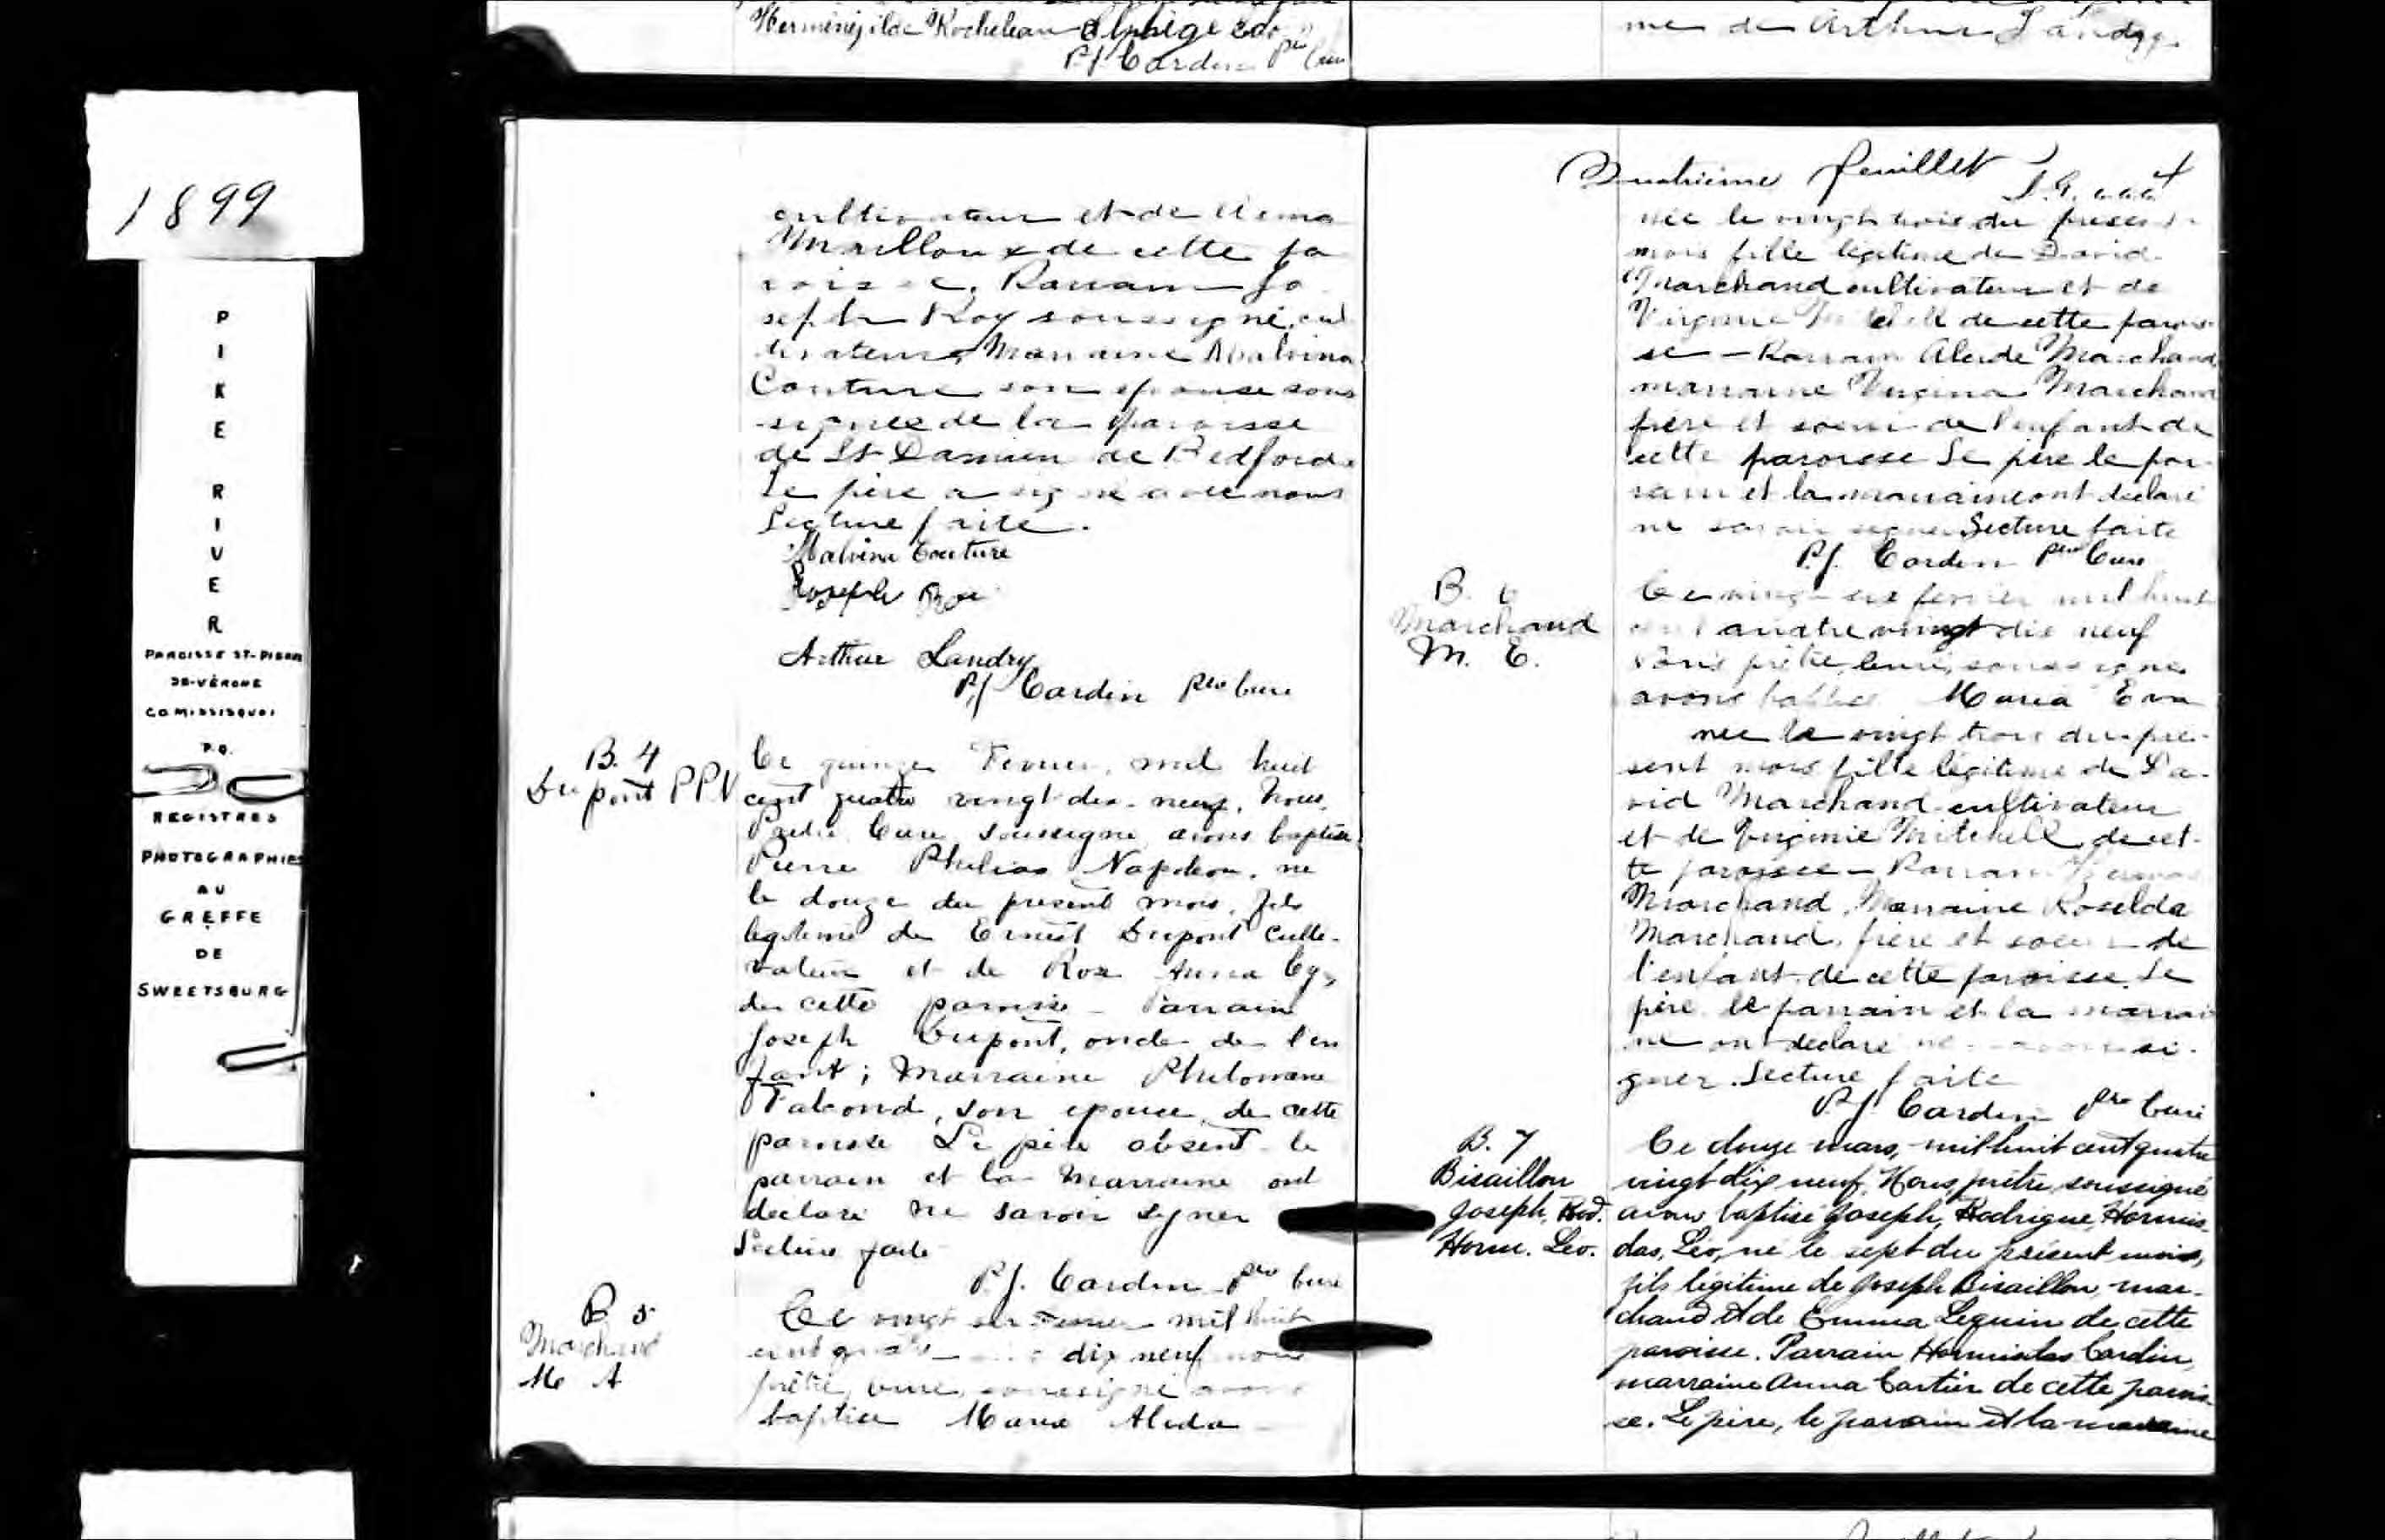 Herménégilde Rocheleau
P.J. Cardin Ptre Curé
me de Arthur Landry
1899
PIKE RIVER
PAROISSE ST-PIERRE
DE-VÉRONE
CO MISSISQUOI
P.Q.
REGISTRES
PHOTOGRAPHIES
AU
GREFFE
DE
SWEETSBURG
cultivateur et de
Mailloux de cette pa
roisse. Parrain Jo
seph Roy soussigné, cul
tivateur, Marraine Malvina
Couture son épouse sous
signée de la paroisse
de St Damien de Bedford.
Le père a signé avec nous
Lecture faite.
Malvina Couture
Joseph Roi
Arthur Landry
P.J. Cardin Ptre Curé
B. 4
Dupont P.P.N
Ce quinze Fevrier, mil huit
cent quatre vingt dix-neuf, Nous,
Prêtre Curé soussigné avons baptisé
Pierre Philias Napoléon, né
le douze du présent mois, fils
légitime de Ernest Dupont Culti-
vateur et de Rose Anna
de cette paroisse - Parrain
Joseph Dupont, oncle de l'en
fant; Marraine Philomène
son épouse, de cette
paroisse Le père absent le
parrain et la Marraine ont
déclaré ne savoir signer
Lecture faite
P.J. Cardin Ptre Curé
B 5
Marchand
M A
Ce vingt six Fevrier mil huit
cent quatre dix neuf nous
prêtre, curé, soussigné avons
baptisé Maria Alida
Quatrième feuillet
née le vingt trois du présent
mois fille légitime de David
Marchand cultivateur et de
Virginie Mitchell de cette parois-
se - Parrain Marchand,
marraine Marchand
frère et soeur de l'enfant de
cette paroisse Le père le par-
rain et la marraine ont déclaré
ne savoir signer Lecture faite
P.J. Cardin Ptre Curé
B. 6
Marchand
M. E.
Ce vingt six fevrier mil huit
cent quatre vingt dix neuf
Nous prêtre, curé, soussigné
avons baptisé Maria Eva
née le vingt trois du pré-
sent mois fille légitime de Da-
vid Marchand cultivateur
et de Virginie Mitchell de cet-
te paroisse - Parrain
Marchand, Marraine Roselda
Marchand, frère et soeur de
l'enfant de cette paroisse. Le
père le parrain et la marrai
ne ont déclaré ne savoir si-
gner. Lecture faite
P.J. Cardin Ptre Curé
B. 7
Bisaillon
Joseph, Rod.
Horm. Léo.
Ce douze mars, mil huit cent quatre
vingt dix neuf, Nous, prêtre, soussigné
avons baptisé Joseph, Rodrigue, Hormis-
das, Léo, né le sept du présent mois,
fils légitime de Joseph Bisaillon, mar-
chand et de Emma Lequin de cette
paroisse. Parrain Hormisdas Cardin,
marraine Anna Cartier de cette parois-
se. Le père, le parrain et la marraine